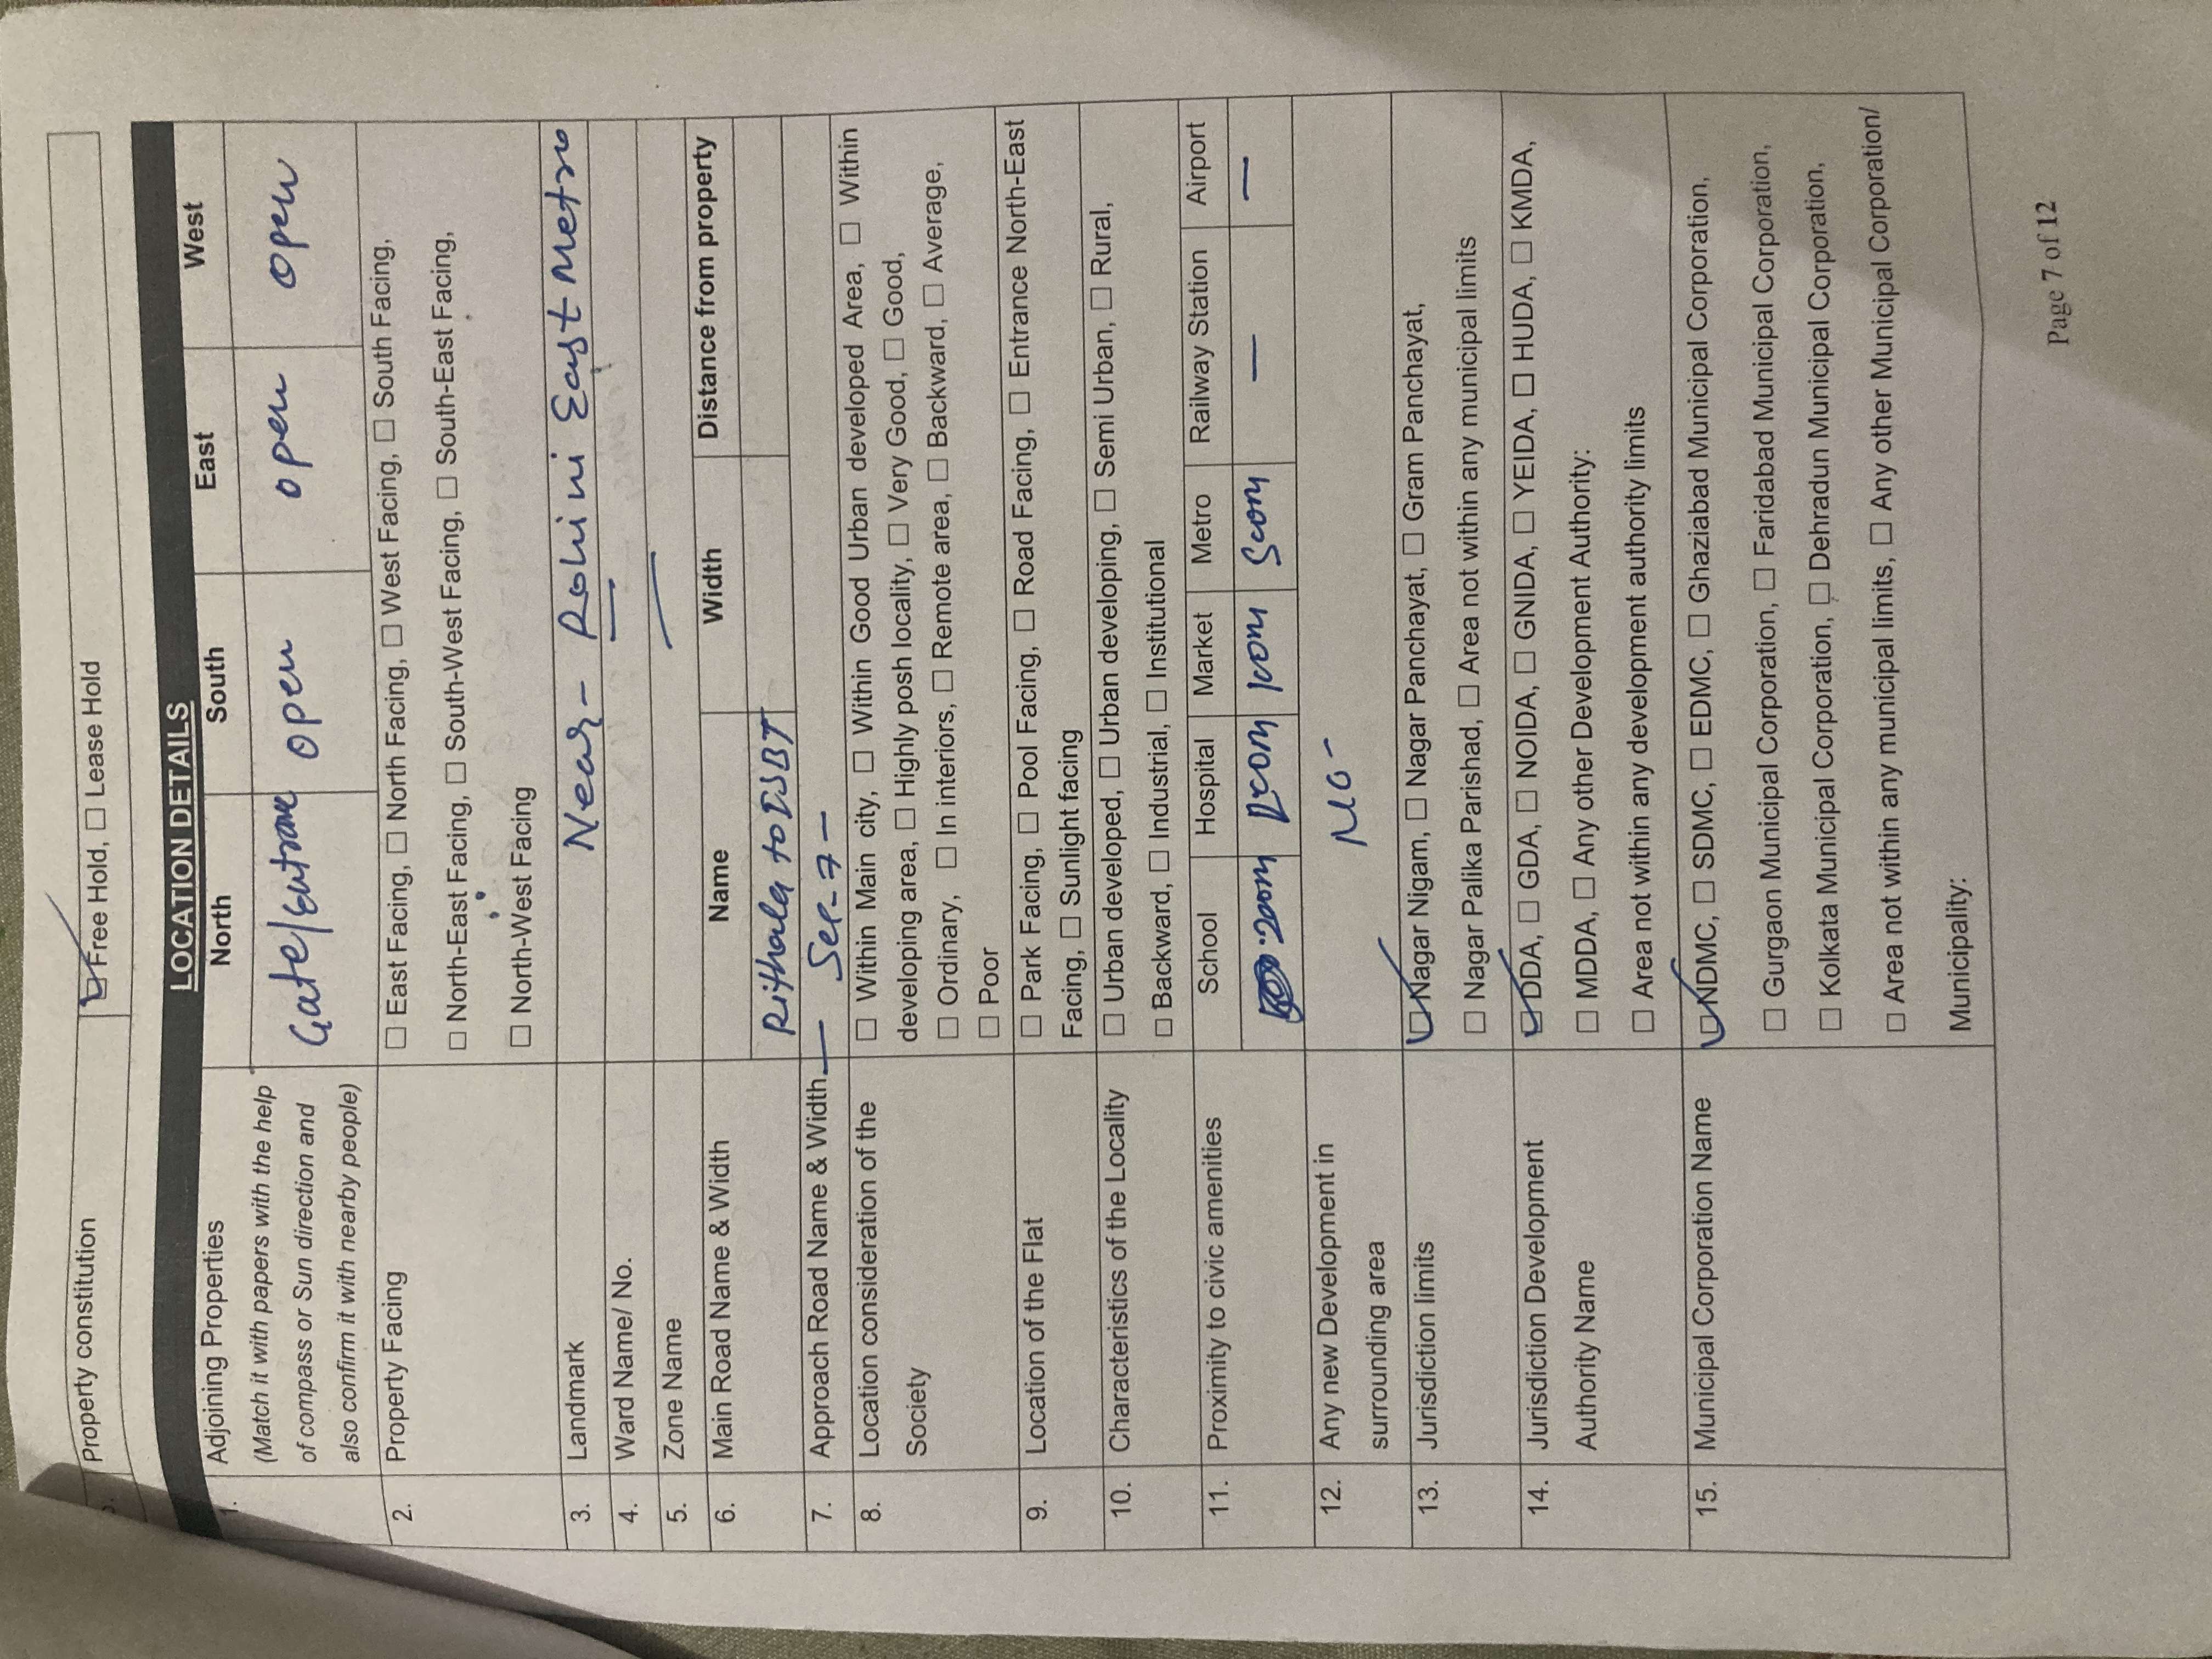 Property constitution ☑ Free Hold, ☐ Lease Hold
LOCATION DETAILS
1. Adjoining Properties North South East West
(Match it with papers with the help of compass or Sun direction and also confirm it with nearby people) Gate/Entrance open open open
2. Property Facing ☐ East Facing, ☐ North Facing, ☐ West Facing, ☐ South Facing,
☐ North-East Facing, ☐ South-West Facing, ☐ South-East Facing,
☐ North-West Facing
3. Landmark Near - Rohini East Metro
4. Ward Name/ No.
5. Zone Name —
6. Main Road Name & Width Name Width Distance from property
Rithala to ISBT
7. Approach Road Name & Width — Sec-7 -
8. Location consideration of the Society ☐ Within Main city, ☐ Within Good Urban developed Area, ☐ Within
developing area, ☐ Highly posh locality, ☐ Very Good, ☐ Good,
☐ Ordinary, ☐ In interiors, ☐ Remote area, ☐ Backward, ☐ Average,
☐ Poor
9. Location of the Flat ☐ Park Facing, ☐ Pool Facing, ☐ Road Facing, ☐ Entrance North-East
Facing, ☐ Sunlight facing
10. Characteristics of the Locality ☐ Urban developed, ☐ Urban developing, ☐ Semi Urban, ☐ Rural,
☐ Backward, ☐ Industrial, ☐ Institutional
11. Proximity to civic amenities School Hospital Market Metro Railway Station Airport
200m — —
12. Any new Development in surrounding area NO -
13. Jurisdiction limits ☑ Nagar Nigam, ☐ Nagar Panchayat, ☐ Gram Panchayat,
☐ Nagar Palika Parishad, ☐ Area not within any municipal limits
14. Jurisdiction Development Authority Name ☑ DDA, ☐ GDA, ☐ NOIDA, ☐ GNIDA, ☐ YEIDA, ☐ HUDA, ☐ KMDA,
☐ MDDA, ☐ Any other Development Authority:
☐ Area not within any development authority limits
15. Municipal Corporation Name ☑ NDMC, ☐ SDMC, ☐ EDMC, ☐ Ghaziabad Municipal Corporation,
☐ Gurgaon Municipal Corporation, ☐ Faridabad Municipal Corporation,
☐ Kolkata Municipal Corporation, ☐ Dehradun Municipal Corporation,
☐ Area not within any municipal limits, ☐ Any other Municipal Corporation/
Municipality:
Page 7 of 12